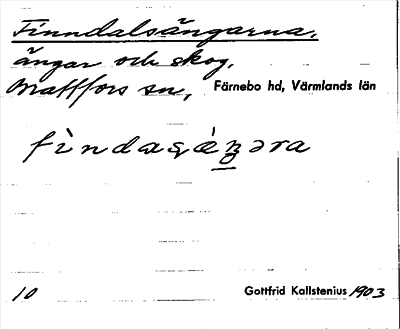 Finndalsängarna,
ängar och skog,
sn, Färnebo hd, Värmlands län
10 Gottfrid Kallstenius 1903